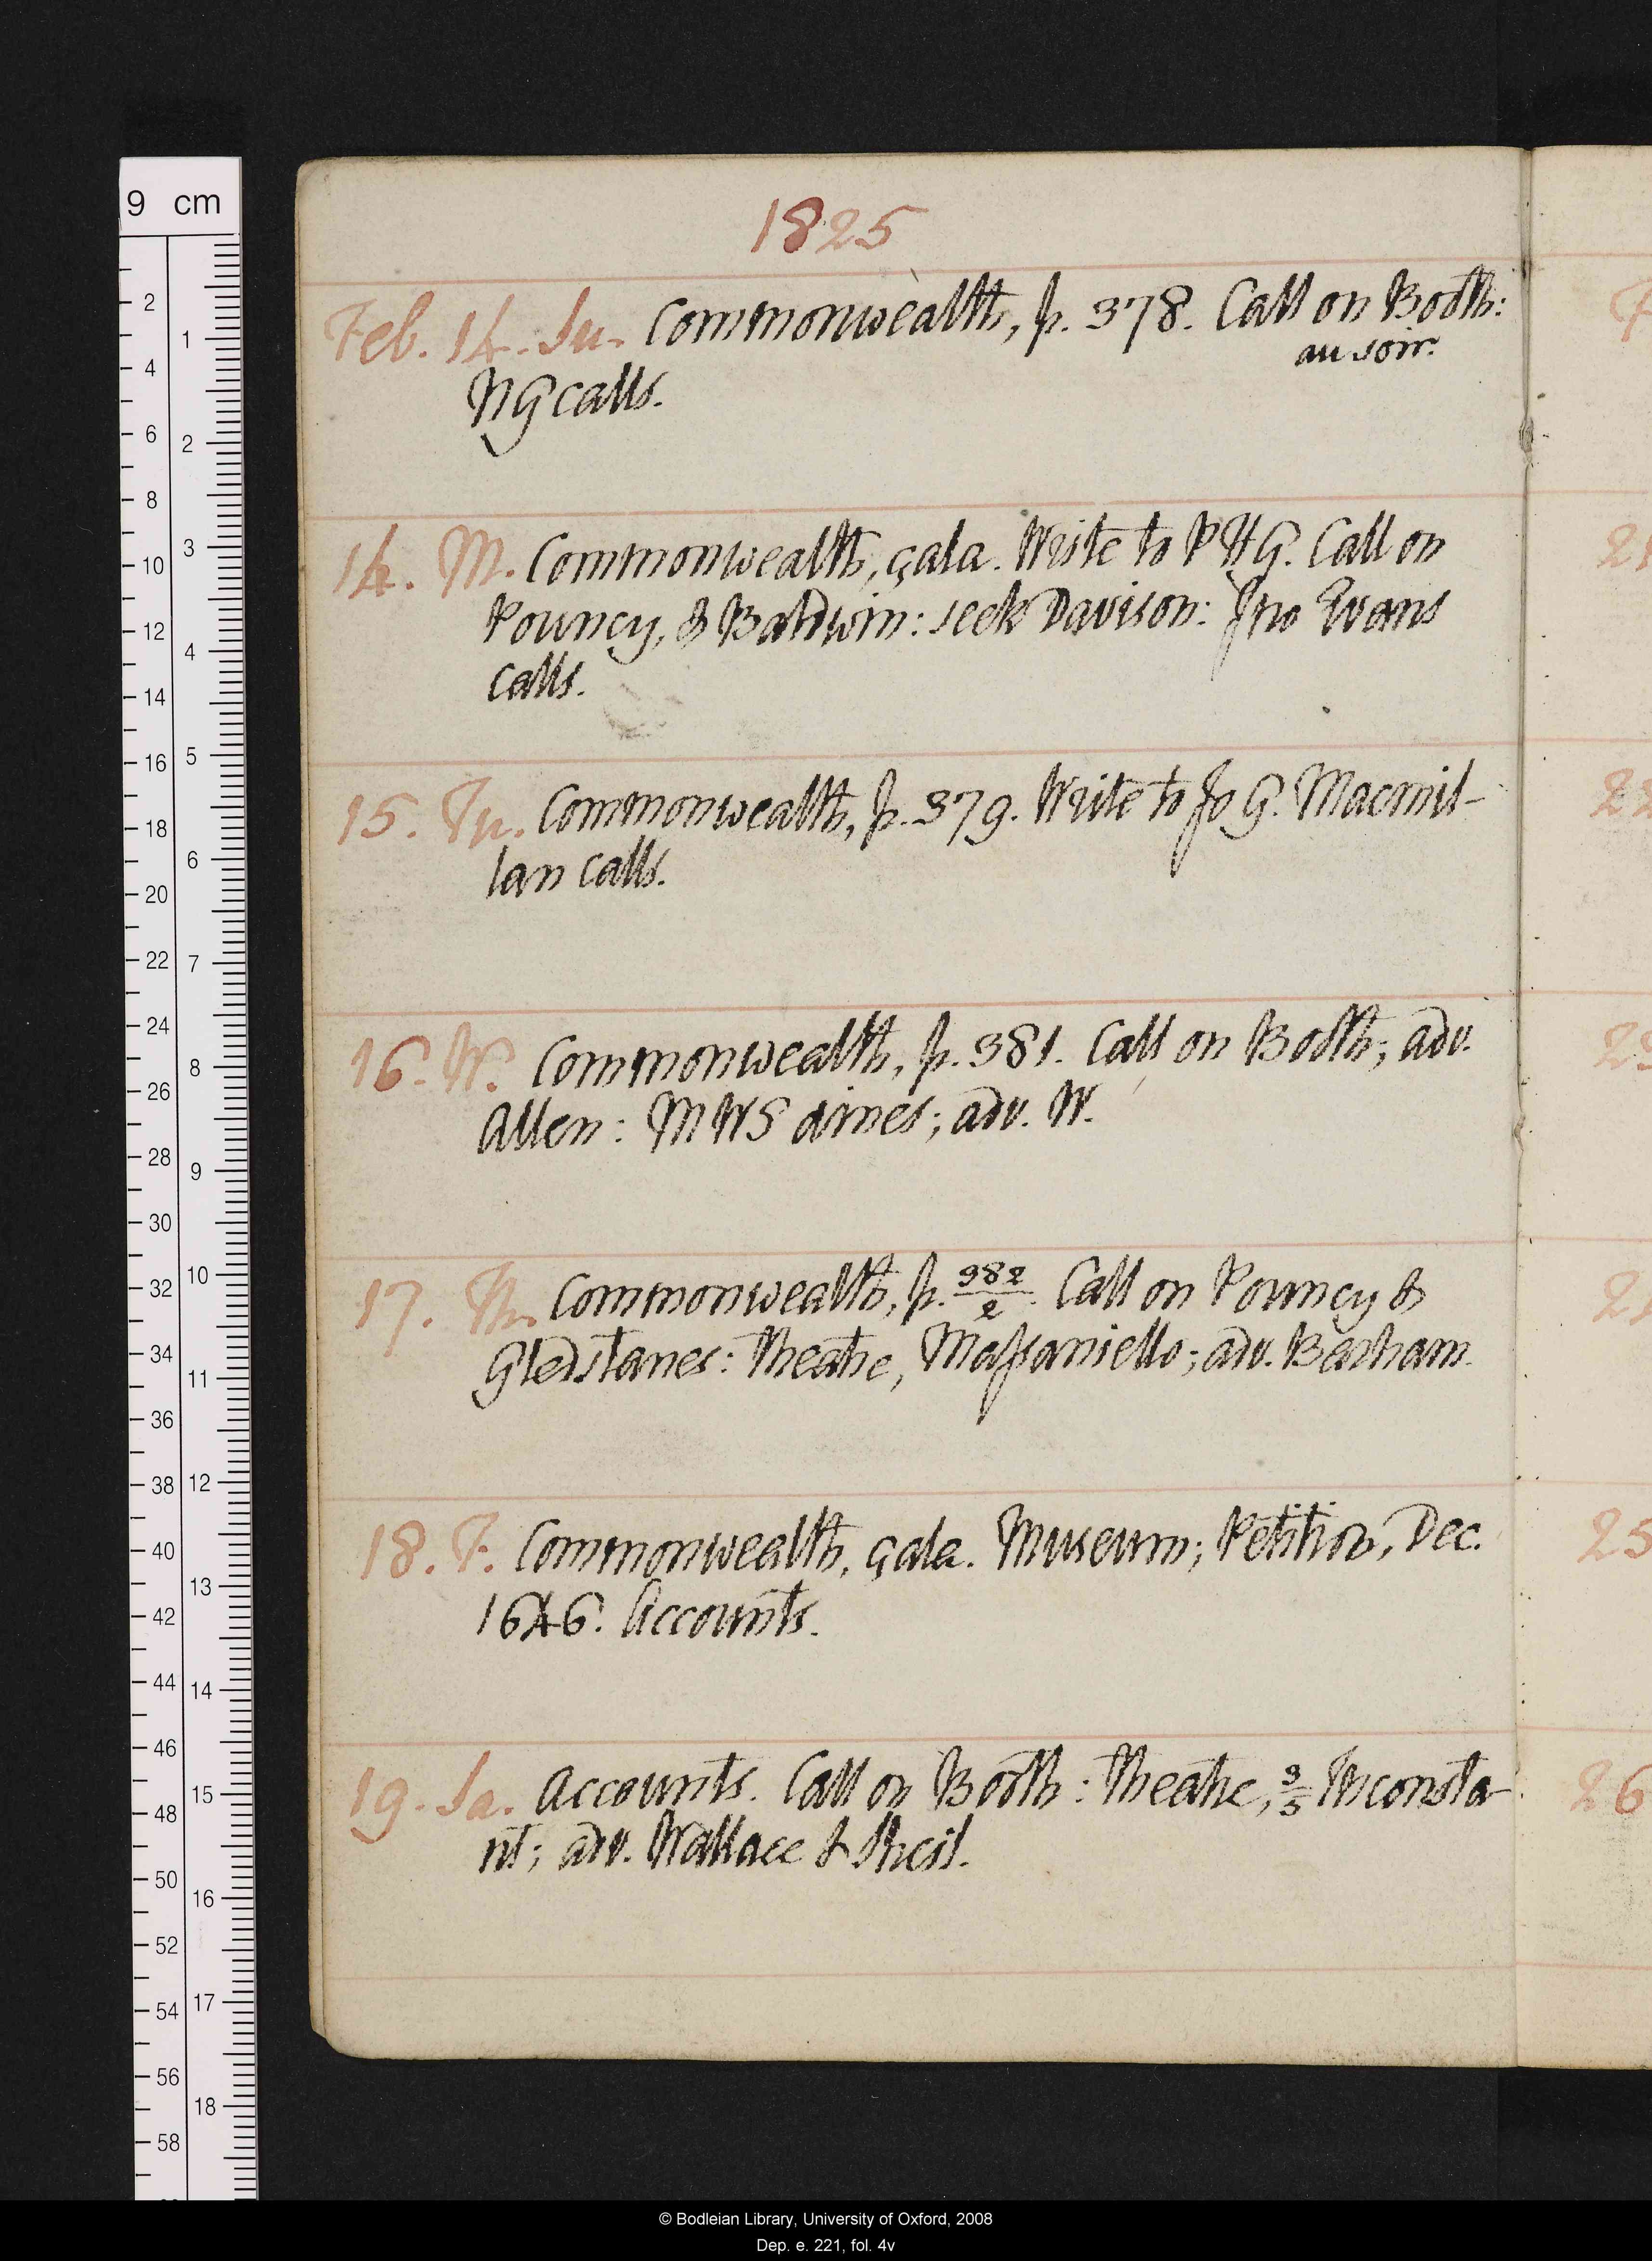 9 cm
1825
Feb. 14. Su. Commonwealth, p. 378. Call on Booth:
au soir.
NG calls.
14. M. Commonwealth, çala. Write to PHG. Call on
Pouncy, & Baldwin: seek Davison: Jno Evans
calls.
15. Tu. Commonwealth, p. 379. Write to Jo G. Macmil-
lan calls.
16. W. Commonwealth, p. 381. Call on Booth; adv.
Allen: MWS dines; adv. W.
17. Th. Commonwealth, p. 382/2. Call on Pouncy &
Gledstanes: Theatre, Massaniello; adv. Barham.
18. F. Commonwealth, çala. Museum; Petition, Dec.
1646. Accounts.
19. Sa. Accounts. Call on Booth: Theatre, 3/5 Inconsta-
nt; adv. Wallace & Sheil.
© Bodleian Library, University of Oxford, 2008
Dep. e. 221, fol. 4v